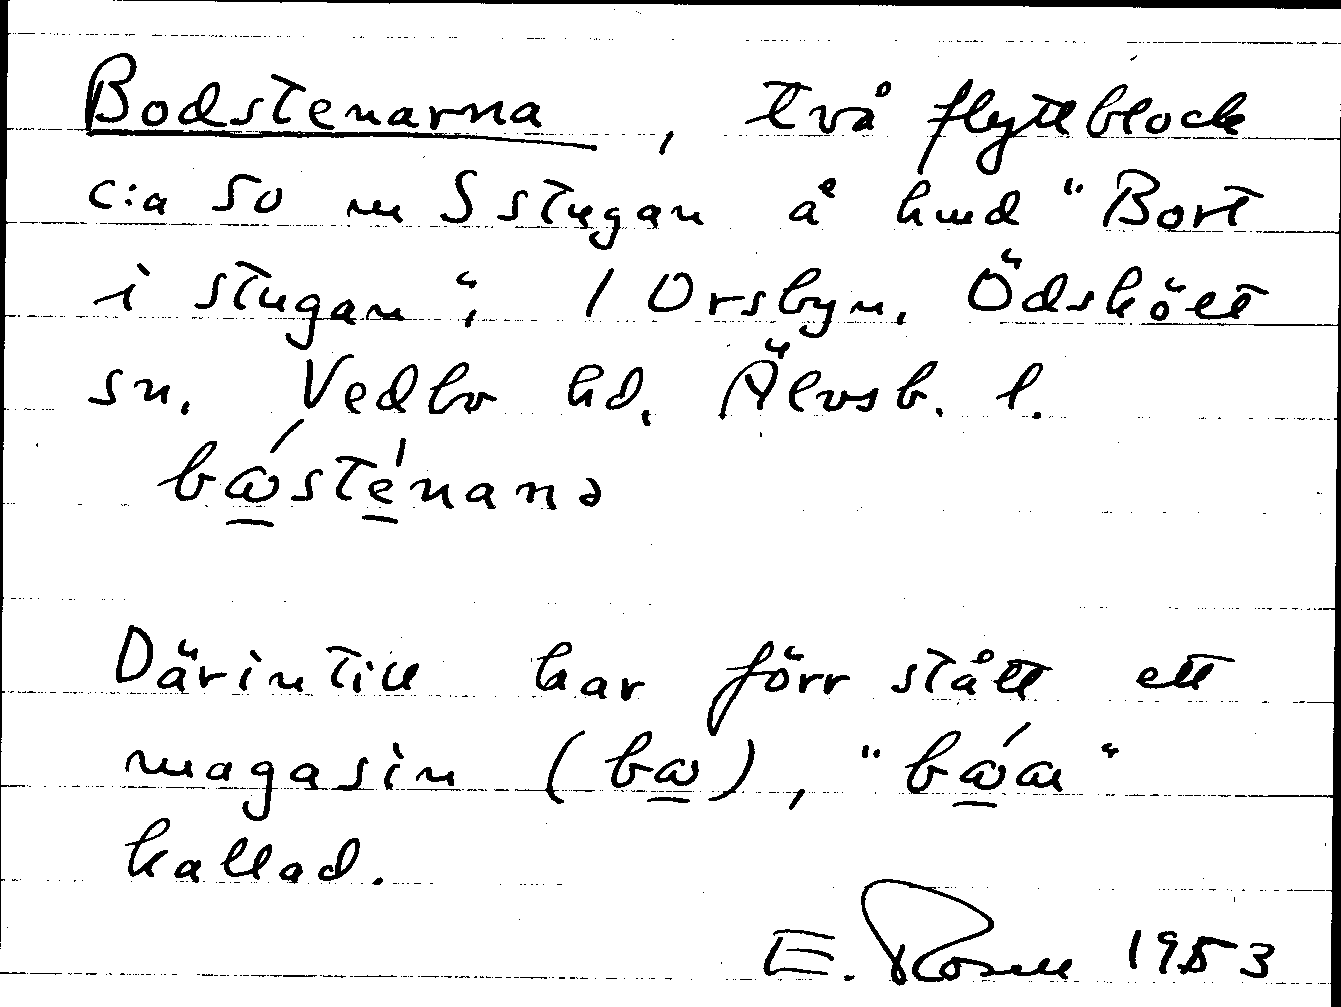 Bodstenarna, två flyttblock
c:a 50 m S stugan å hmd "Bort
i stugan", 1 Orsbyn, Ödskölt
sn, Vedbo hd, Älvsb. l.
bωsténanə
Därintill har förr stått ett
magasin (bω), "bωa"
kallad.
E. Rosell 1953